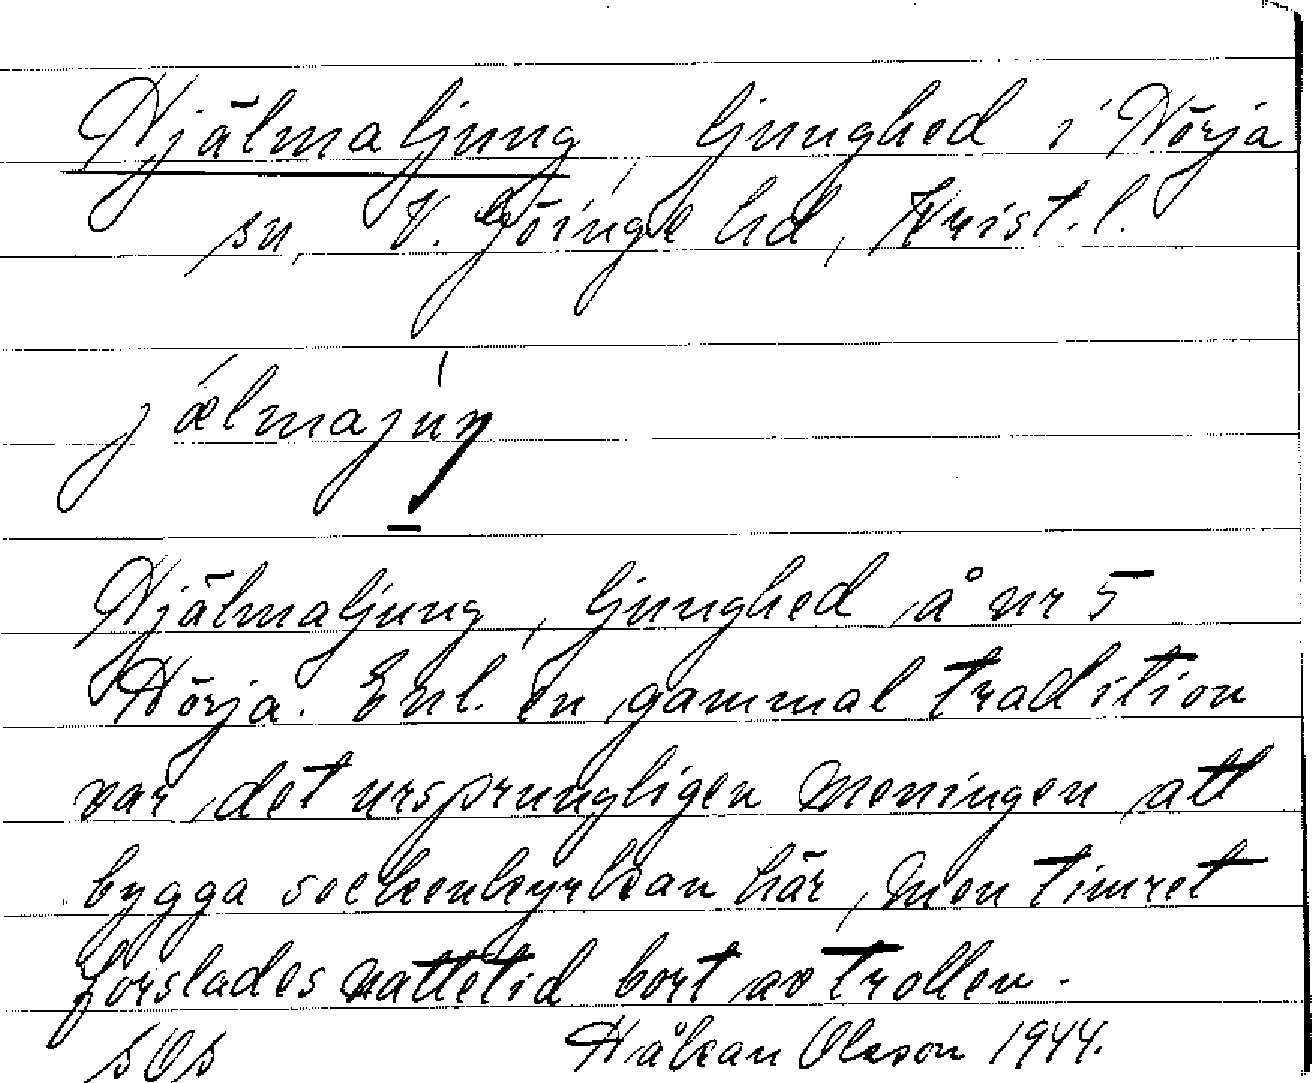 Hjälmaljung, ljunghed i Hörja
sn, V. Göinge hd, Krist. l.
jælmajuŋ
Hjälmaljung, ljunghed å nr 5
Hörja. Enl. en gammal tradition
var det ursprungligen meningen att
bygga sockenkyrkan här, men timret
forslades nattetid bort av trollen.
Håkan Olsson 1944.